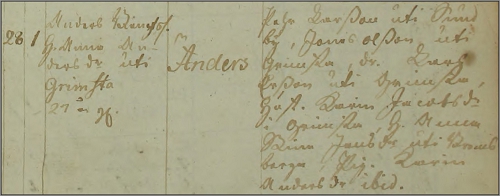 28 1 Anders
H. Anna An-
ders dr uti
Grimsta
Anders
Pehr Larsson uti Sund
by, Jonas Olsson uti
Grimsta, dr. Lars
Ersson uti Grimsta,
Hust. Karin Jacobs dr
i Grimsta, H. Anna
Stina Jans dr uti
berga Pig. Karin
Anders dr ibid.